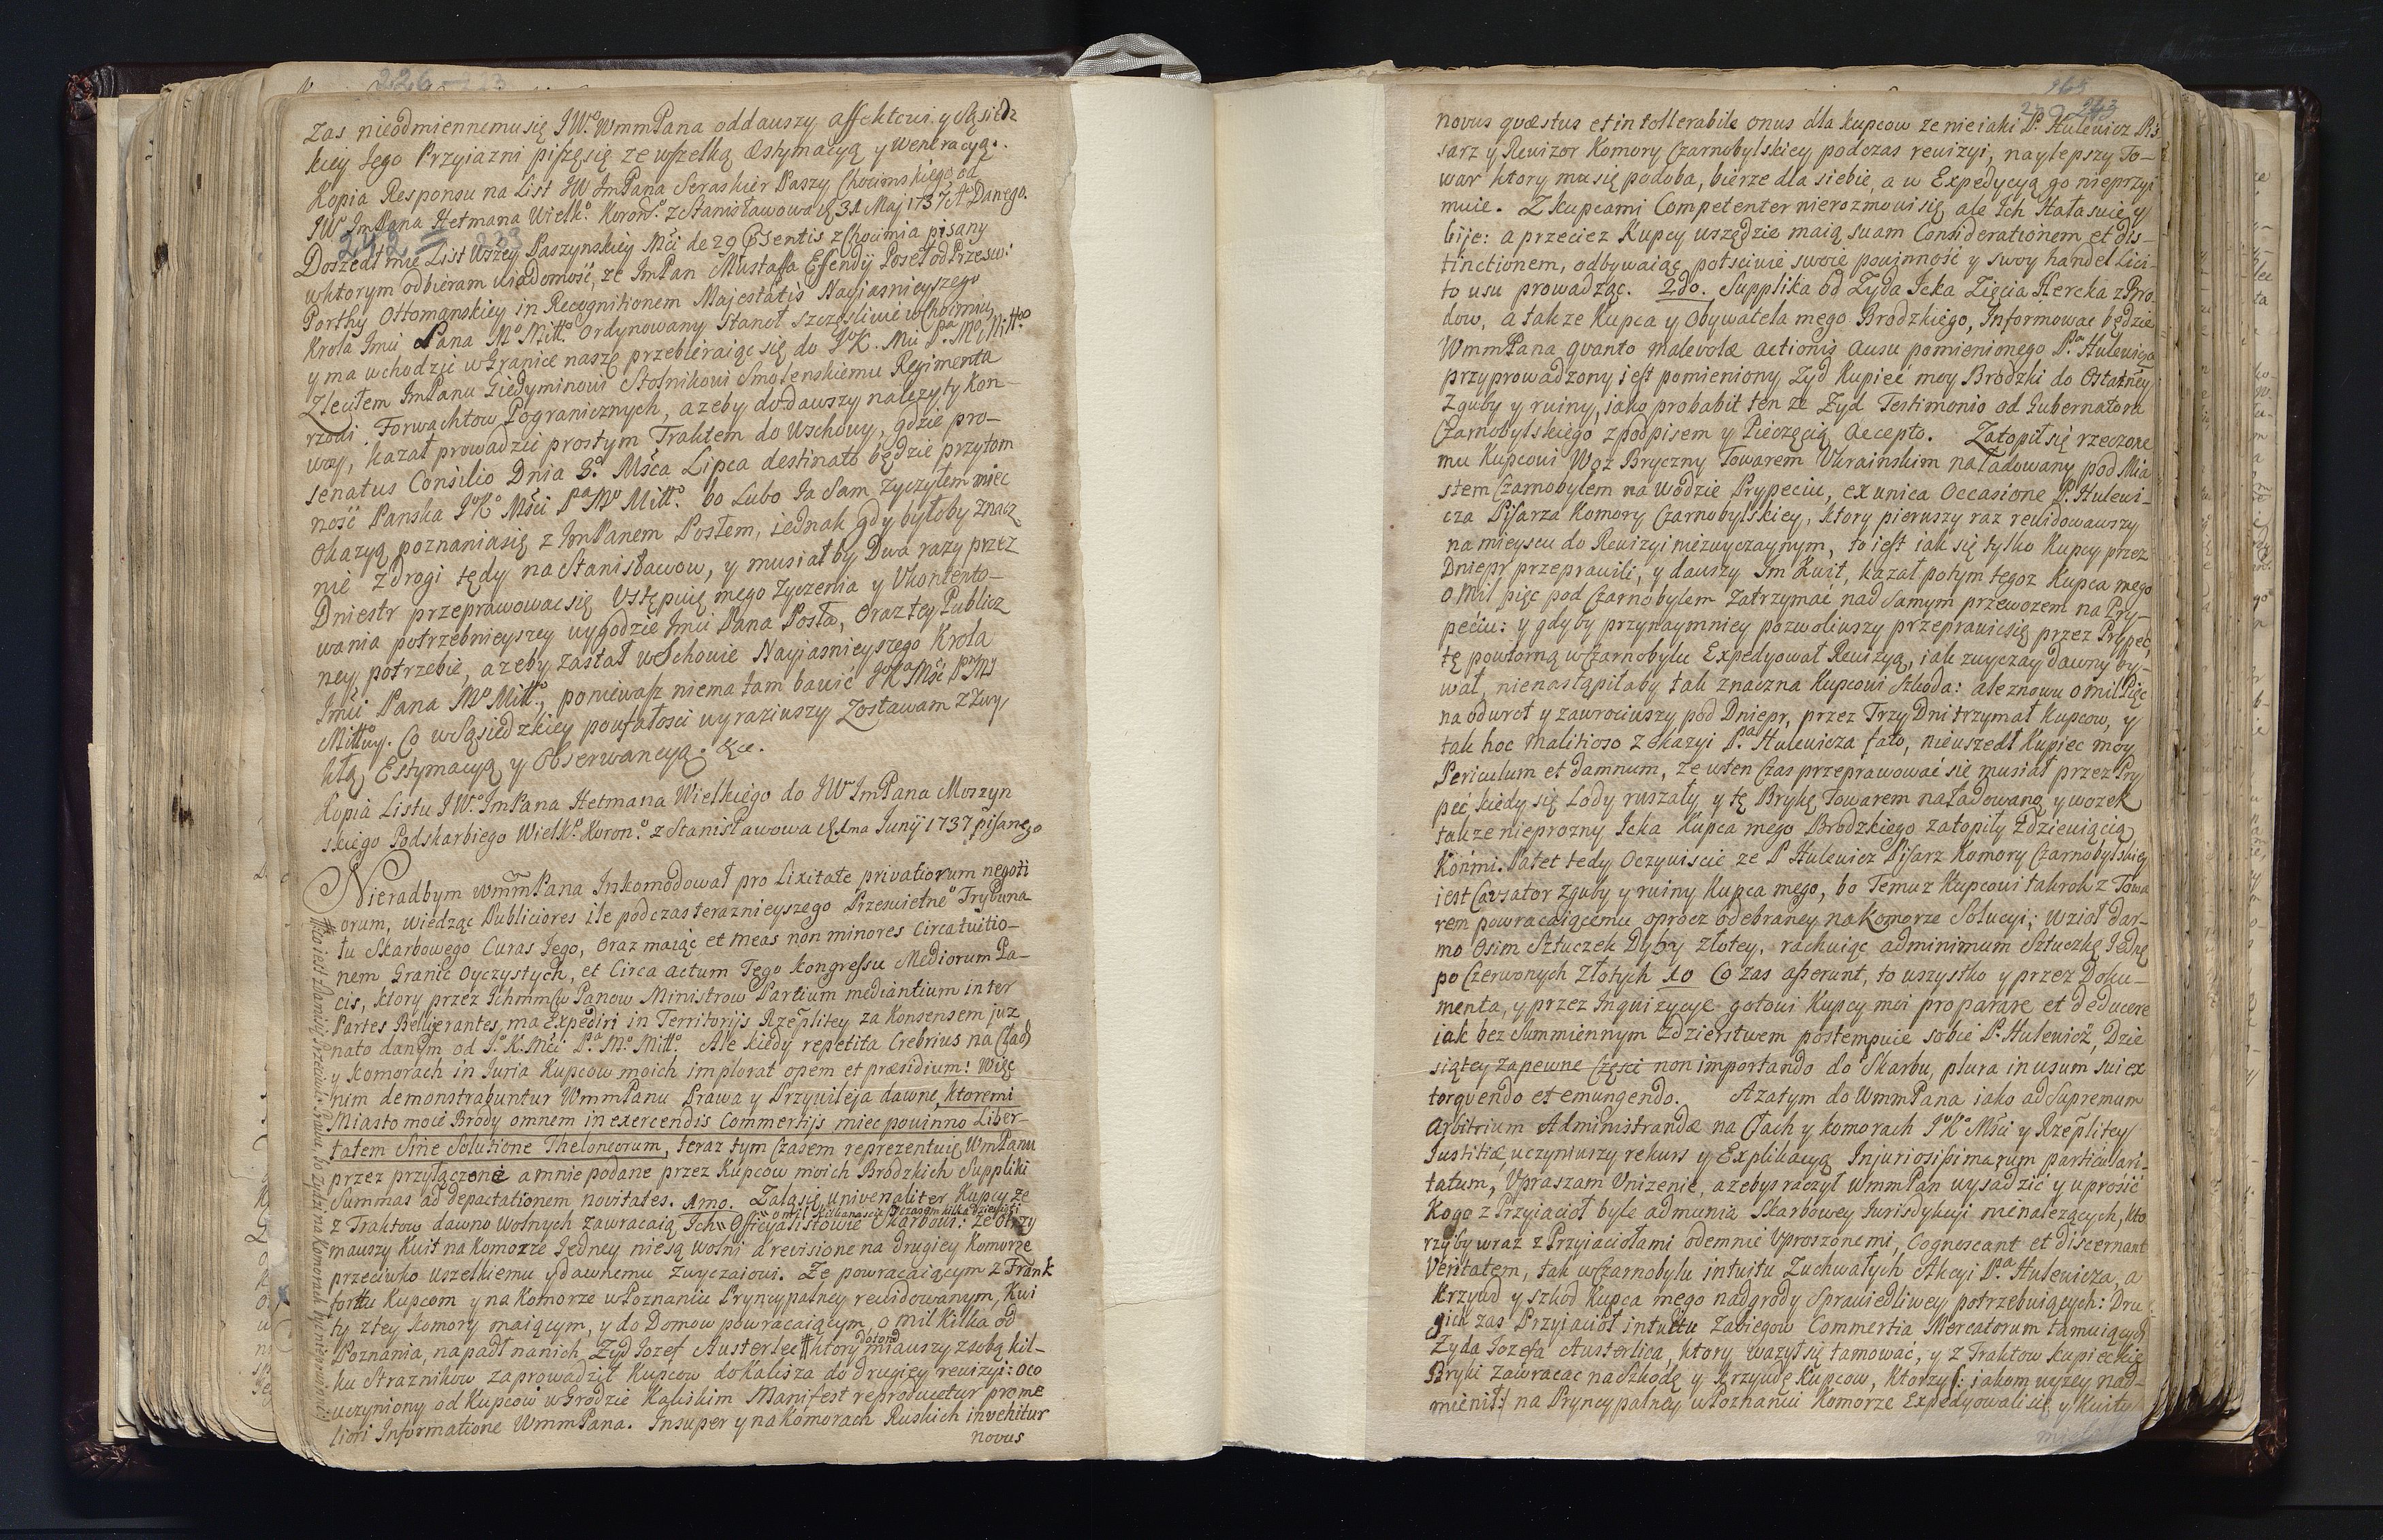 226 233
zas nieodmiennemu się JW.º WmmPana oddauszy affektowi y Sąsiedz
kiey Jego Przyiazni piszę się ze wszelką Æstymacyą y Weneracyą.
Kopia Responsu na List JW JmPana Seraskier Paszy Chocimskiego od
JW JmPana Hetmana Wielk.º Koron.º z Stanisławowa d 31 Maj 1737 Aº Danego.
242 233
Doszedł mie List Wszey Paszynskiey Mći de 29 Psentis z Chocimia pisany
wktorym odbieram wiadomość, ze JmPan Mustaffa Effendy Poseł od Przesw:
Porthy Ottomanskiey in Recognitionem Majestatis Nayiasnieyszego
Krola Jmći Pana Mº Miłł.º Ordynowany stanoł szczęśliwie w Chocimiu,
y ma wchodzić w Granice naszę przebieraiąc się do J.º K. Mći P.ª M.º Miłł.º
Zleciłem JmPanu Giedyminowi Stolnikowi Smolenskiemu Regimenta
rzowi Forwachtow Pogranicznych, azeby dodauszy nalezyty Kon-
woy, kazał prowadzić prostym Traktem do Wschowy, gdzie pro-
senatus Consilio Dnia 8º Mśca Lipca destinato będzie przytom
ność Panska Jº Kº Mśći Pª Mº Miłł.º bo Lubo Ja Sam zyczyłem miec
Okazyą poznania się z JmPanem Posłem, iednak gdy byłoby znacz
nie z drogi tędy na Stanisławow, y musiałby Dwa razy przez
Dniestr przeprawowac się Ustępuię mego zyczenia y Ukontento-
wania potrzebnieyszey wygodzie Jmći Pana Posła, oraz tey Publicz
ney potrzebie, azeby zastał w Schowie Nayiasnieyszego Krola
Jmći Pana Mº Miłł.º, poniewasz niema tam bawić Jº Kª Mść Pª Mº
Miłłwy. Co w Sąsiedzkiey poufałosci wyraziuszy Zostawam z Zwy
kłą Estymacyą y Obserwancyą. &c.
Kopia Listu JW.º JmPana Hetmana Wielkiego do JW JmPana Moszyn
skiego Podskarbiego Wielk.º Koron.º z Stanisławowa d 1ma Junij 1737 pisanego
Nieradbym WmmPana Inkomodował pro lixitate privatiorum negoti
orum, wiedząc Publiciores ile podczas teraznieyszego Przeswietneº Trybuna
łu Skarbowego Curas Jego, oraz maiąc et meas non minores Circa tuitio-
nem Granic Oyczystych, et Circa actum Tego kongressu Mediorum Pa-
cis, ktory przez Panow Ministrow Partium mediantium inter
Partes Belligerantes, ma Expediri in Territorijs Rzeplitey za Konsensem juz
nato danym od J.º K. Mći P.ª M.º Miłł.º Ale kiedy repetita Crebrius na Cłach
y komorach in Juria Kupcow moich implorat opem et præsidium! Więc
nim demonstrabuntur WmmPanu Prawa y Przywileja dawne, ktoremi
Miasto moie Brody omnem in exercendis Commertijs miec powinno Liber-
tatem Sine Solutione Theloneorum, teraz tym czasem reprezentuię WmPanu
przez przyłączone a mnie podane przez Kupcow moich Brodzkich Suppliki
Summas ad depactationem novitates. 1mo. Zalą się univensaliter Kupcy ze
z Traktow dawno wolnych zawracaią Ich Officyalistowie Skarbowi: ze otrzy
o mil kilkanascie y czasem kilka dziesiąt
mauszy Kwit na Komorze Jedney niesą wolni a revisione na drugiey Komorze
przeciwko wszelkiemu y dawnemu zwyczaiowi. Ze powracaiącym z Frank
fortu Kupcom y na Komorze w Poznaniu Pryncypalney rewidowanym, Kwi
ty z tey komory maiącym, y do Domow powracaiącym, o mil kilka od
Poznania, napadł na nich Zyd Jozef Austerlec # ktory miauszy z sobą kil-
ku Straznikow zaprowadził Kupcow do Kalisza do drugiey rewizyi: oco
uczyniony od Kupcow w Grodzie Kaliskim Manifest reproducetur pro me
liori Informatione WmmPana. Insuper y na Komorach Ruskich invehitur
novus
265
263
novus qvæstus et intollerabile onus dla kupcow ze nieiaki P. Hulewicz Pi
sarz y Rewizor Komory Czarnobylskiey podczas rewizyi, naylepszy To-
war ktory mu się podoba, bierze dla siebie, a w Expedycyą go nieprzyi
muie. Z kupcami Competenter nierozmowi się, ale Ich Hałasuie y
biie: a przeciez Kupcy wszędzie maią suam Considerationem et dis-
tinctionem, odbywaiąc poćsciwie swoie powinność y swoy handel Lici-
to usu prowadząc. 2do. Supplika od Zyda Icka Zięcia Hercka z Bro
dow, a takze Kupca y Obywatela mego Brodzkiego, Informowac będzie
WmmPana qvanto malevolæ actionis ausu pomienionego P.ª Hulewicza
przyprowadzony iest pomieniony Zyd Kupiec moy Brodzki do Ostatney
Zguby y ruiny, iako probabit ten ze Zyd Testimonio od Gubernatora
Czarnobylskiego z podpisem y Pieczęcią Accepto. Zatopił się rzeczone
mu Kupcowi Woz Bryczny Towarem Ukrainskim naładowany pod Mia
stem Czarnobylem na Wodzie Prypeciu, ex unica Occasione P. Hulewi-
cza Pisarza Komory Czarnobylskiey, ktory pierwszy raz rewidowawszy
na mieyscu do Rewizyi niezwyczaynym, to iest iak się tylko Kupcy przez
Dniepr przeprawili, y dauszy Im Kwit, kazał potym tegoz Kupca mego
o Mil pięc pod Czarnobylem zatrzymać nad samym przewozem na Pry-
peciu: y gdyby przynaymniey pozwoliuszy przeprawić się przez Prypec,
tę powtorną w Czarnobylu Expedyował Rewizyą, iak zwyczay dawny by-
wał, nienastąpiłaby tak znaczna Kupcowi Szkoda: ale znowu o mil Pięc
na odwrot y zawrociuszy pod Dniepr, przez Trzy Dni trzymał Kupcow, y
tak hoc Malitioso z okazyi P.ª Hulewicza fato, nieuszedł Kupiec moy
Periculum et damnum, ze w ten Czas przeprawować się musiał przez Pry
peć, kiedy się Lody ruszały, y tę Brykę Towarem naładowaną y wozek
takze nieprozny Icka Kupca mego Brodzkiego zatopiły z dziewiącią
Końmi. Patet tedy Oczywiscie ze P Hulewicz Pisarz Komory Czarnobylskiey
iest Causator Zguby y ruiny Kupca mego, bo Temuz Kupcowi takrok z Towa
rem powracaiącemu oprocz odebraney na Komorze Solucyi; wzioł dar-
mo Osim Sztuczek Dyby złotey, rachuiąc ad minimum Sztuczkę Jednę
po Czerwonych złotych 10 Co zas asserunt, to wszystko y przez Doku-
menta, y przez Inquizycye gotowi Kupcy moi proparare et deducere
iak bez Summiennym zdzierstwem postempuie sobie P. Hulewicz, Dzie
siątey zapewne Częsci non importando do Skarbu, plura in usum sui ex
torqvendo et emungendo. A zatym do WmmPana iako ad Supremum
Arbitrium Administrandæ na Cłach y komorach Jº Kº Mśći y Rzeplitey
Justitiæ, uczyniuszy rekurs y Explikacyą Injuriosissimarum particulari-
tatum, Upraszam Unizenie, azebys raczył WmmPan wysadzić y uprośić
Kogo z Przyiacioł byle ad munia Skarbowey Jurisdykcyi nienalezących, kto
rzyby wraz z Przyiaciołami odemnie Uproszonemi, Cognoscant et discernant
Veritatem, tak w Czarnobylu intuitu Zuchwałych Akcyi P.ª Hulewicza, a
Krzywd y szkod Kupca mego nadgrody Sprawiedliwey potrzebuiących: Dru
gich zas Przyiacioł intuitu Zabiegow Commertia Mercatorum tamuiących
Zyda Jozefa Austerlica, ktory wazył się tamować, y z Traktow kupieckie
Bryki Zawracac na Szkodę y Krzywdę Kupcow, ktorzy /: iakom wyzey nad-
mienił:/ na Pryncypalney w Poznaniu Komorze Expedyowali się y Kwity